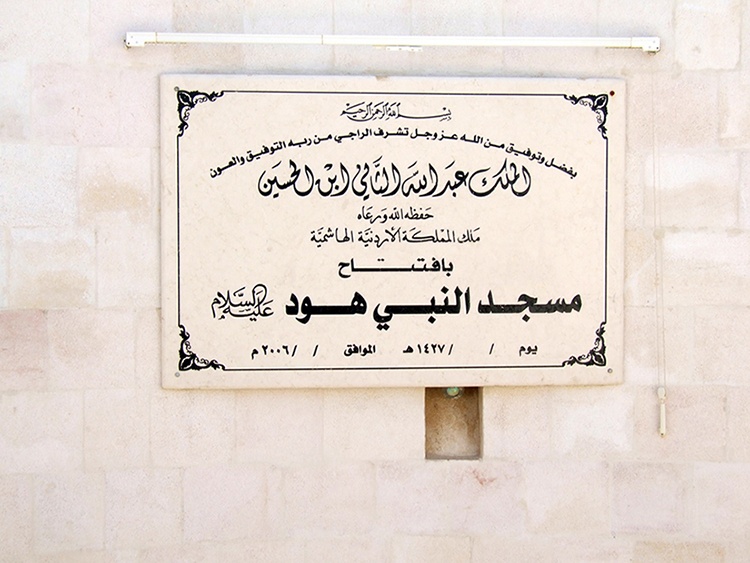 بسم الله الرحمن الرحيم
بفضل وتوفيق من الله عز وجل تشرف الراجي من ربه التوفيق والعون
الملك عبد الله الثاني ابن الحسين
حفظه الله ورعاه
ملك المملكة الأردنية الهاشمية
بافتتاح
مسجد النبي هود عليه السلام
يوم / / ١٤٢٧ هـ الموافق / / ٢٠٠٦ م